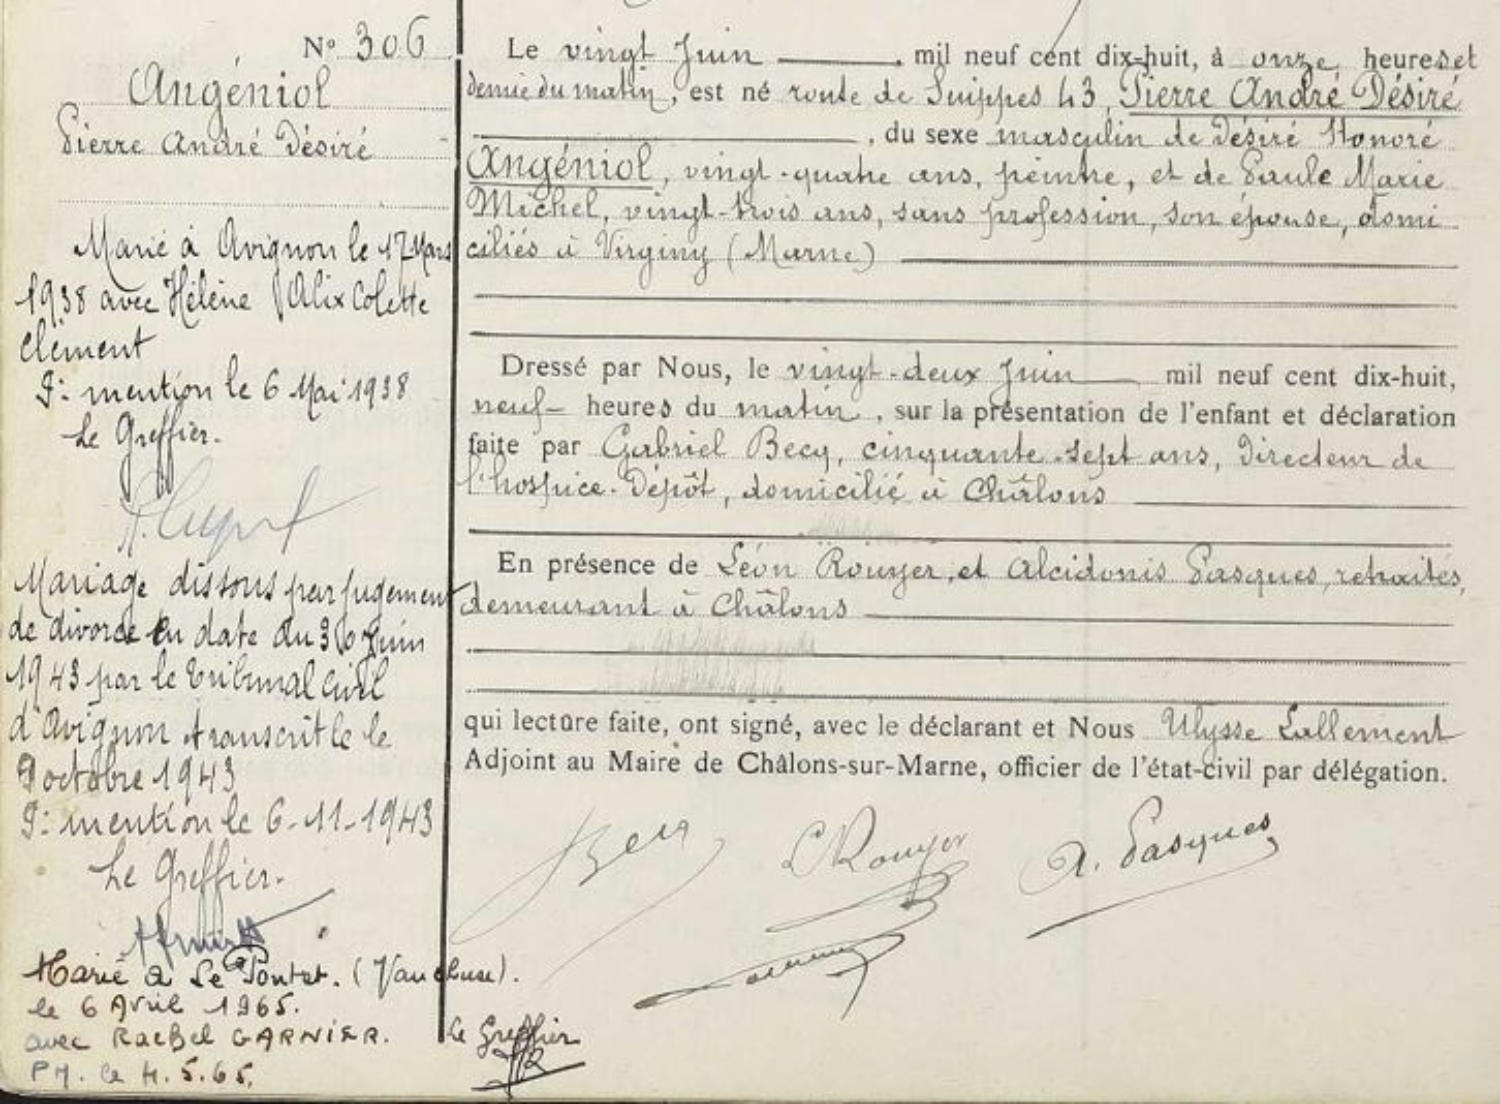 N° 306
Angéniol
Pierre André Désiré
Marié à Avignon le 17 Mars
1938 avec Hélène Alix Colette
Clément
P: mention le 6 Mai 1938
Le Greffier.
Mariage dissous par jugement
de divorce en date du 30 Juin
1943 par le tribunal civil
d'Avignon transcrit le le
9 octobre 1943
P: mention le 6-11-1943
Le Greffier.
Marié à Le Pontet. (Vaucluse).
le 6 Avril 1965.
avec Rachel GARNIER.
PM. le 4.5.65.
Le Greffier
Le vingt Juin mil neuf cent dix-huit, à onze heures et
demie du matin, est né route de Suippes 43, Pierre André Désiré
, du sexe masculin de Désiré Honoré
Angéniol, vingt-quatre ans, peintre, et de Paule Marie
Michel, vingt-trois ans, sans profession, son épouse, domi
ciliés à Virginy (Marne)
Dressé par Nous, le vingt-deux Juin mil neuf cent dix-huit,
neuf heures du matin, sur la présentation de l'enfant et déclaration
faite par Gabriel Becq, cinquante-sept ans, Directeur de
l'hospice-Dépôt, domicilié à Châlons
En présence de Léon Rouyer, et Alcidonis Pasques, retraités,
demeurant à Châlons
qui lecture faite, ont signé, avec le déclarant et Nous Ulysse Lallement
Adjoint au Maire de Châlons-sur-Marne, officier de l'état-civil par délégation.
Becq
L Rouyer
A. Pasques